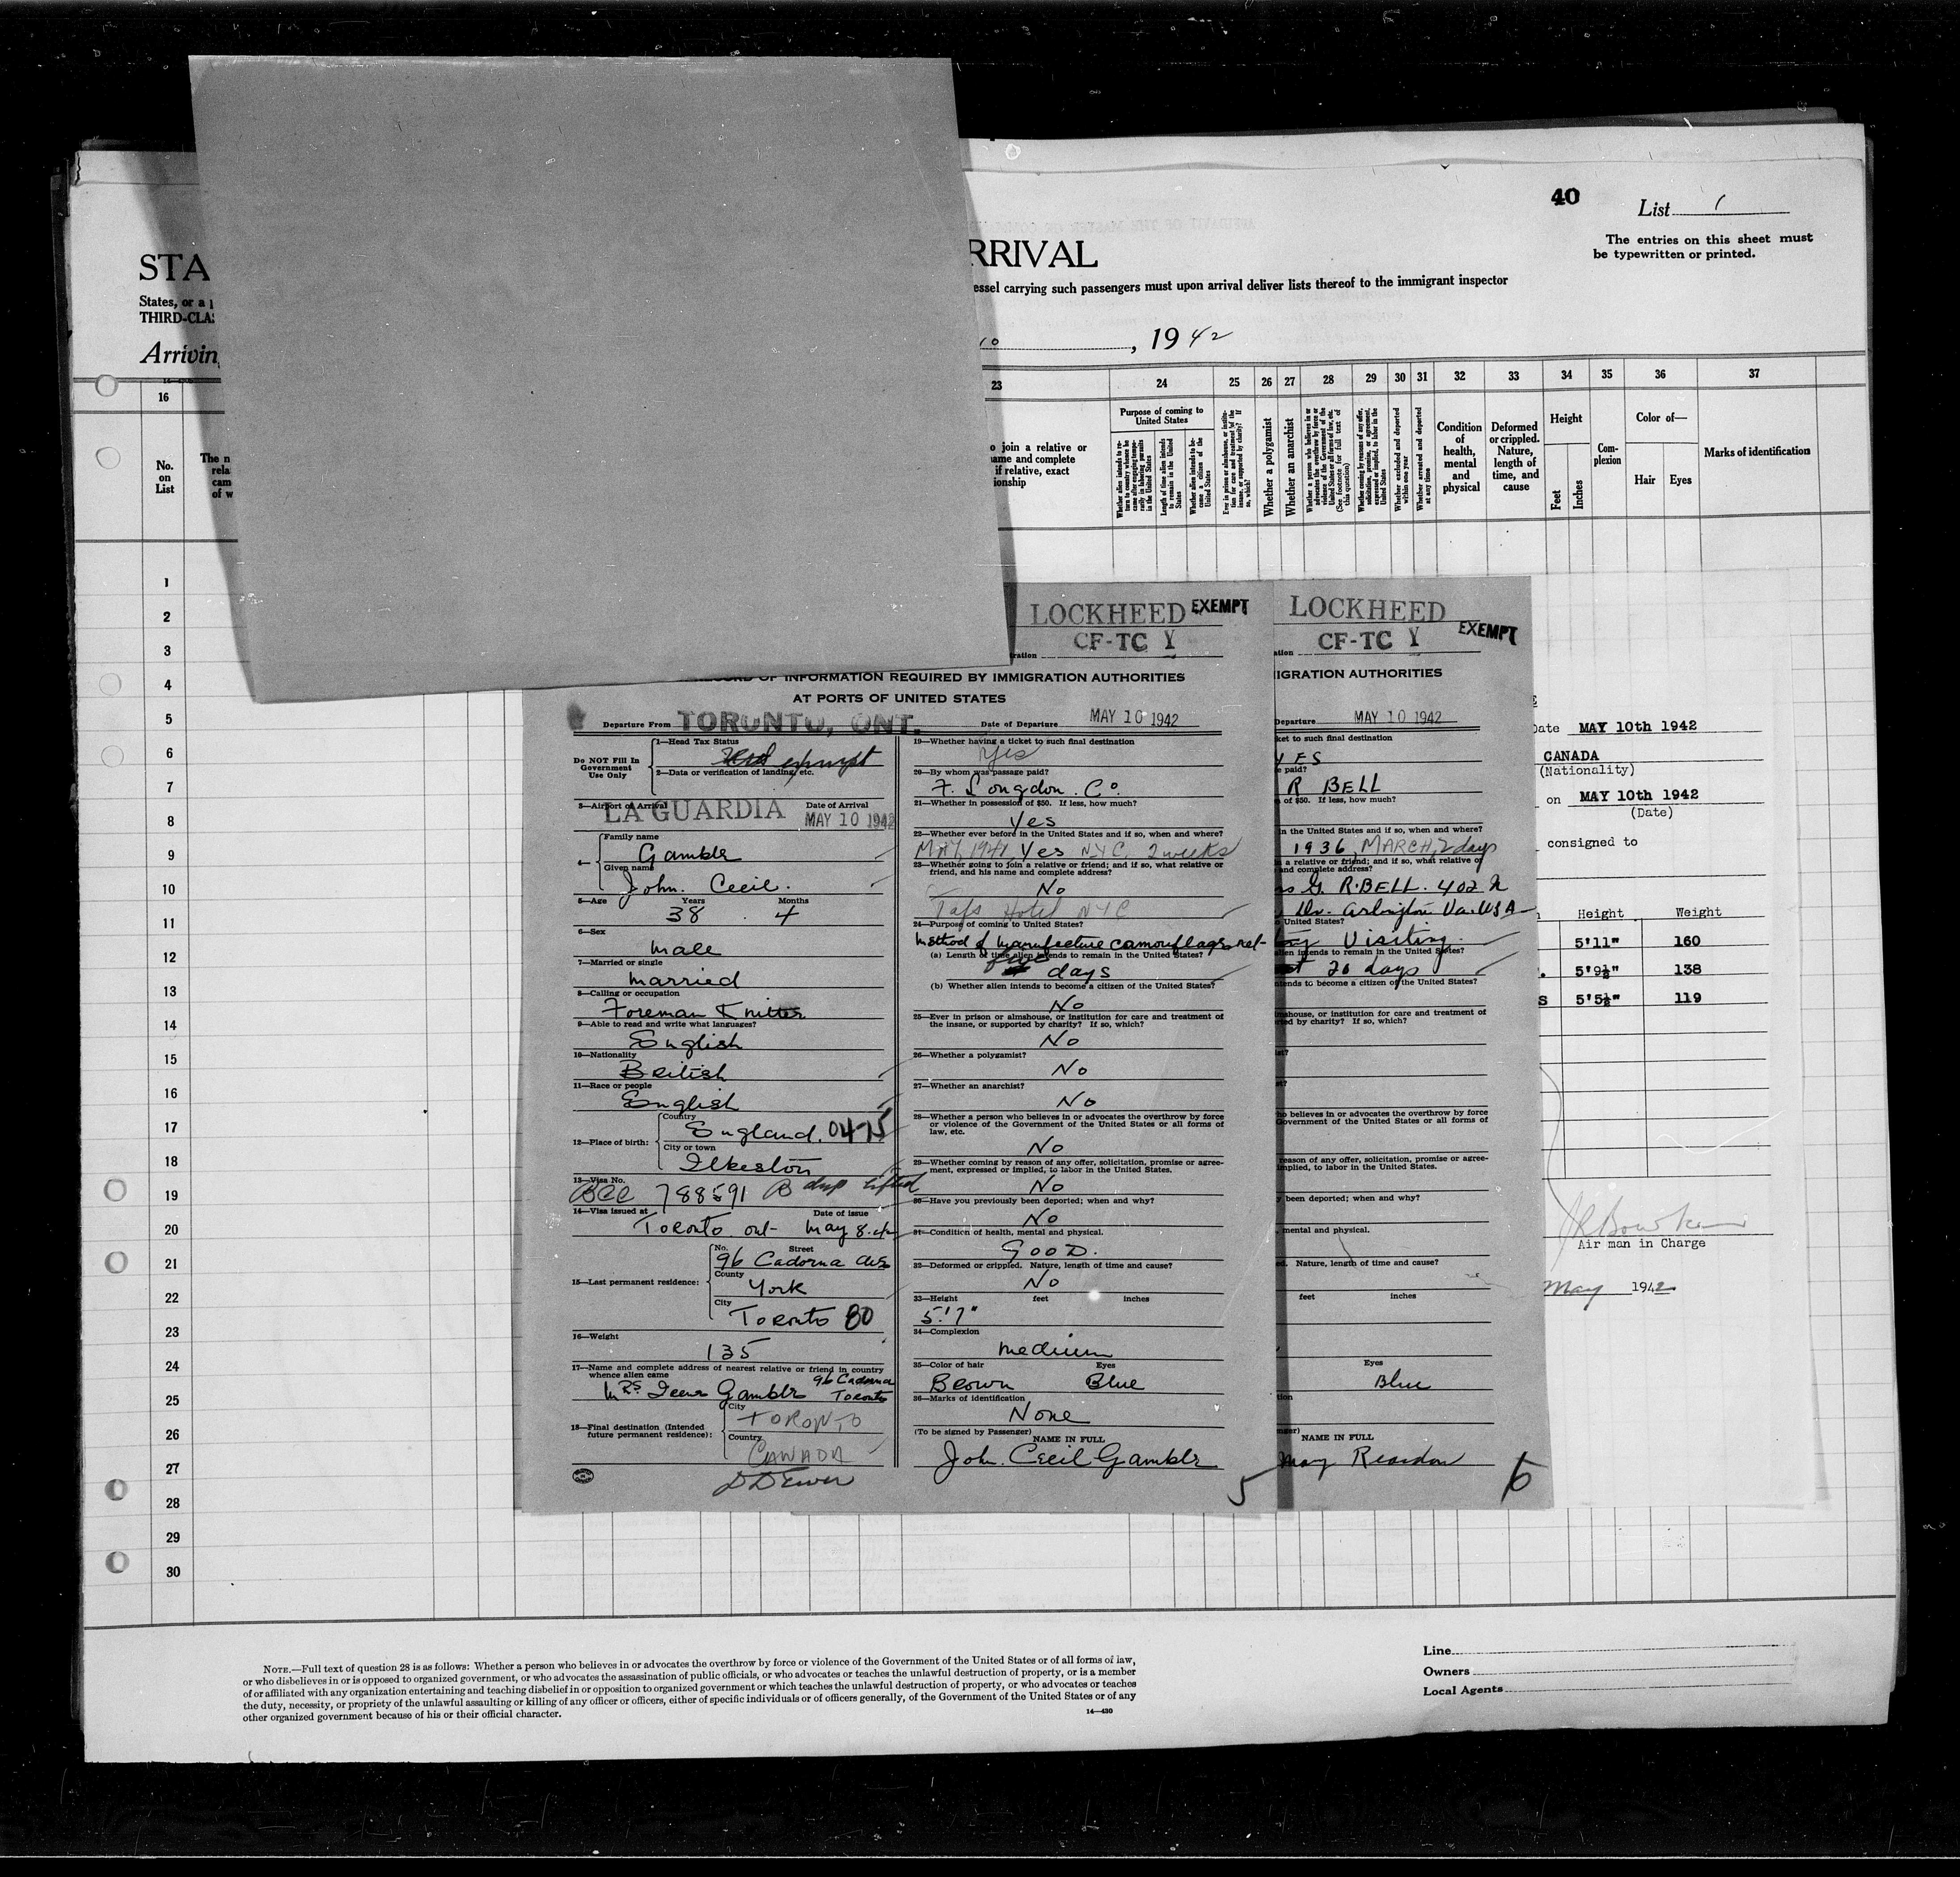 40
List 1
The entries on this sheet must
be typewritten or printed.
STA
RRIVAL
States, or a
essel carrying such passengers must upon arrival deliver lists thereof to the immigrant inspector
THIRD-CLA
Arrivin
10, 1942
16
23
24
25
26
27
28
29
30
31
32
33
34
35
36
37
No.
on
List
The n
rela
cam
of w
o join a relative or
ame and complete
if relative, exact
ionship
Purpose of coming to
United States
Whether a polygamist
Whether an anarchist
Condition
of
health,
mental
and
physical
Deformed
or crippled.
Nature,
length of
time, and
cause
Height
Feet
Inches
Com-
plexion
Color of—
Hair
Eyes
Marks of identification
1
2
3
4
5
6
7
8
9
10
11
12
13
14
15
16
17
18
19
20
21
22
23
24
25
26
27
28
29
30
LOCKHEED EXEMPT
CF-TC Y
tration
RECORD OF INFORMATION REQUIRED BY IMMIGRATION AUTHORITIES
AT PORTS OF UNITED STATES
Departure From TORONTO, ONT.
Date of Departure MAY 10 1942
Do NOT Fill In
Government
Use Only
1—Head Tax Status
exempt
2—Data or verification of landing, etc.
3—Airport of Arrival
Date of Arrival
LA GUARDIA
MAY 10 1942
4—
Family name
Gamble
Given name
John. Cecil.
5—Age
Years
Months
38 4
6—Sex
male
7—Married or single
married
8—Calling or occupation
Foreman Knitter
9—Able to read and write what languages?
English
10—Nationality
British
11—Race or people
English
12—Place of birth:
Country
England. 04-15
City or town
Ilkeston
13—Visa No.
BCC 788591 B dup lifted
14—Visa issued at
Date of issue
Toronto ont- May 8-42
15—Last permanent residence:
No. Street
96 Cadorna Ave
County
York
City
Toronto 80
16—Weight
135
17—Name and complete address of nearest relative or friend in country
whence alien came
Mrs. Gamble 96 Cadorna
Toronto
18—Final destination (Intended
future permanent residence):
City
TORONTO
Country
CANADA
19—Whether having a ticket to such final destination
Yes
20—By whom was passage paid?
F. Longdon. Co.
21—Whether in possession of $50. If less, how much?
Yes
22—Whether ever before in the United States and if so, when and where?
1941 Yes NYC. 2 weeks
23—Whether going to join a relative or friend; and if so, what relative or
friend, and his name and complete address?
No
Taft Hotel NYC
24—Purpose of coming to United States?
Method of manufacture camouflage net-
(a) Length of time alien intends to remain in the United States?
five days
(b) Whether alien intends to become a citizen of the United States?
No
25—Ever in prison or almshouse, or institution for care and treatment of
the insane, or supported by charity? If so, which?
No
26—Whether a polygamist?
No
27—Whether an anarchist?
No
28—Whether a person who believes in or advocates the overthrow by force
or violence of the Government of the United States or all forms of
law, etc.
No
29—Whether coming by reason of any offer, solicitation, promise or agree-
ment, expressed or implied, to labor in the United States.
No
30—Have you previously been deported; when and why?
No
31—Condition of health, mental and physical.
GOOD.
32—Deformed or crippled. Nature, length of time and cause?
No
33—Height feet inches
5'.7"
34—Complexion
medium
35—Color of hair Eyes
Brown Blue
36—Marks of identification
None
(To be signed by Passenger)
NAME IN FULL
John. Cecil Gamble
5
LOCKHEED
EXEMPT
CF-TC Y
ation
IGRATION AUTHORITIES
Departure MAY 10 1942
ket to such final destination
YES
e paid?
R BELL
n of $50. If less, how much?
in the United States and if so, when and where?
1936, MARCH, 2 days
n a relative or friend; and if so, what relative or
and complete address?
G. R. BELL. 402 N
Dr. Arlington Va. USA
United States?
Visiting.
alien intends to remain in the United States?
20 days
ntends to become a citizen of the United States?
mshouse, or institution for care and treatment of
ted by charity? If so, which?
st?
st?
ho believes in or advocates the overthrow by force
Government of the United States or all forms of
reason of any offer, solicitation, promise or agree-
implied, to labor in the United States.
y been deported; when and why?
mental and physical.
ed. Nature, length of time and cause?
feet inches
Eyes
Blue
tion
nger)
NAME IN FULL
May Reardon
6
Date MAY 10th 1942
CANADA
(Nationality)
on MAY 10th 1942
(Date)
consigned to
Height Weight
5'11" 160
5'9½" 138
S 5'5½" 119
Air man in Charge
May 1942
NOTE.—Full text of question 28 is as follows: Whether a person who believes in or advocates the overthrow by force or violence of the Government of the United States or of all forms of law,
or who disbelieves in or is opposed to organized government, or who advocates the assassination of public officials, or who advocates or teaches the unlawful destruction of property, or is a member
of or affiliated with any organization entertaining and teaching disbelief in or opposition to organized government or which teaches the unlawful destruction of property, or who advocates or teaches
the duty, necessity, or propriety of the unlawful assaulting or killing of any officer or officers, either of specific individuals or of officers generally, of the Government of the United States or of any
other organized government because of his or their official character.
14—430
Line
Owners
Local Agents